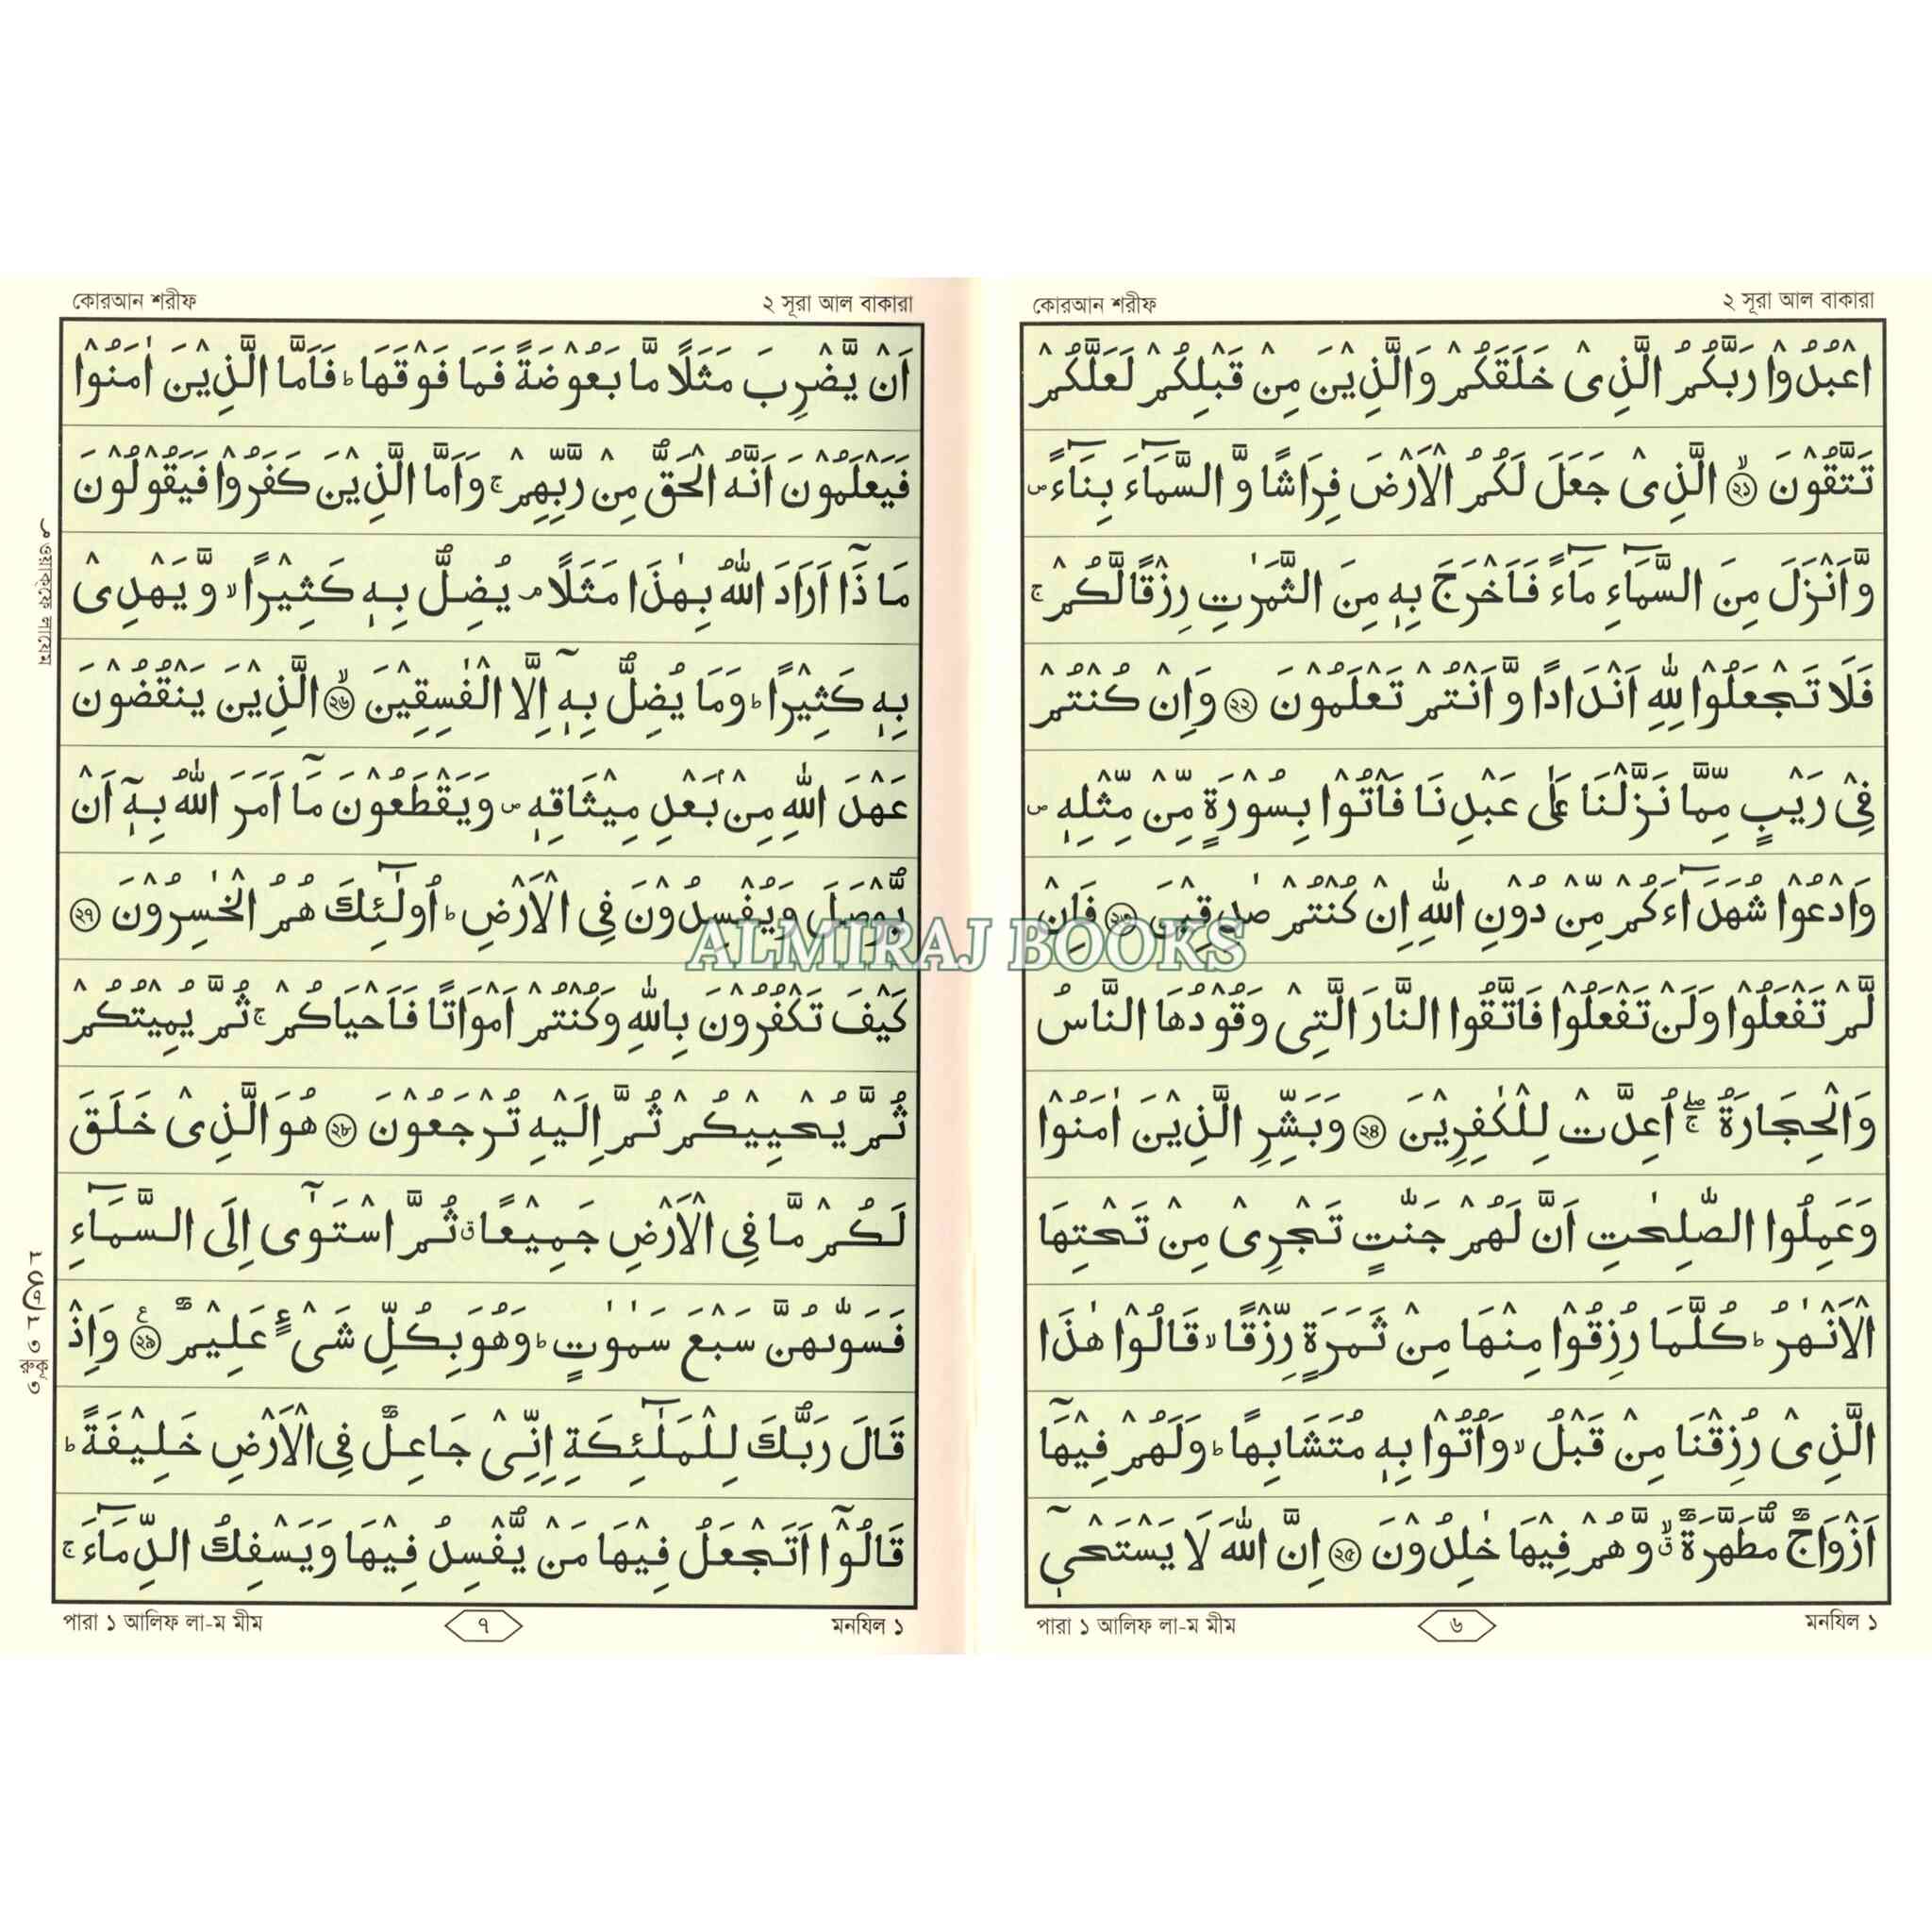 ২ সূরা আল বাকারা
কোরআন শরীফ
اعْبُدُوْا رَبَّكُمُ الَّذِىْ خَلَقَكُمْ وَالَّذِيْنَ مِنْ قَبْلِكُمْ لَعَلَّكُمْ
تَتَّقُوْنَ ۙ ২১ الَّذِىْ جَعَلَ لَكُمُ الْاَرْضَ فِرَاشًا وَّ السَّمَآءَ بِنَآءً ۪
وَّاَنْزَلَ مِنَ السَّمَآءِ مَآءً فَاَخْرَجَ بِهٖ مِنَ الثَّمَرٰتِ رِزْقًا لَّكُمْ ۚ
فَلَا تَجْعَلُوْا لِلّٰهِ اَنْدَادًا وَّ اَنْتُمْ تَعْلَمُوْنَ ২২ وَاِنْ كُنْتُمْ
فِىْ رَيْبٍ مِّمَّا نَزَّلْنَا عَلٰى عَبْدِنَا فَاْتُوْا بِسُوْرَةٍ مِّنْ مِّثْلِهٖ ۪
وَادْعُوْا شُهَدَآءَكُمْ مِّنْ دُوْنِ اللّٰهِ اِنْ كُنْتُمْ صٰدِقِيْنَ ২৩ فَاِنْ
لَّمْ تَفْعَلُوْا وَلَنْ تَفْعَلُوْا فَاتَّقُوا النَّارَ الَّتِىْ وَقُوْدُهَا النَّاسُ
وَالْحِجَارَةُ ۖۚ اُعِدَّتْ لِلْكٰفِرِيْنَ ২৪ وَبَشِّرِ الَّذِيْنَ اٰمَنُوْا
وَعَمِلُوا الصّٰلِحٰتِ اَنَّ لَهُمْ جَنّٰتٍ تَجْرِىْ مِنْ تَحْتِهَا
الْاَنْهٰرُ ؕ كُلَّمَا رُزِقُوْا مِنْهَا مِنْ ثَمَرَةٍ رِّزْقًا ۙ قَالُوْا هٰذَا
الَّذِىْ رُزِقْنَا مِنْ قَبْلُ ۙ وَاُتُوْا بِهٖ مُتَشَابِهًا ؕ وَلَهُمْ فِيْهَآ
اَزْوَاجٌ مُّطَهَّرَةٌ ۙۗ وَّهُمْ فِيْهَا خٰلِدُوْنَ ২৫ اِنَّ اللّٰهَ لَا يَسْتَحْىٖٓ
মনযিল ১
৬
পারা ১ আলিফ লা-ম মীম
২ সূরা আল বাকারা
কোরআন শরীফ
اَنْ يَّضْرِبَ مَثَلًا مَّا بَعُوْضَةً فَمَا فَوْقَهَا ؕ فَاَمَّا الَّذِيْنَ اٰمَنُوْا
فَيَعْلَمُوْنَ اَنَّهُ الْحَقُّ مِنْ رَّبِّهِمْ ۚ وَاَمَّا الَّذِيْنَ كَفَرُوْا فَيَقُوْلُوْنَ
مَاذَآ اَرَادَ اللّٰهُ بِهٰذَا مَثَلًا ۘ يُضِلُّ بِهٖ كَثِيْرًا ۙ وَّيَهْدِىْ
بِهٖ كَثِيْرًا ؕ وَمَا يُضِلُّ بِهٖٓ اِلَّا الْفٰسِقِيْنَ ۙ ২৬ الَّذِيْنَ يَنْقُضُوْنَ
عَهْدَ اللّٰهِ مِنْۢ بَعْدِ مِيْثَاقِهٖ ۪ وَيَقْطَعُوْنَ مَآ اَمَرَ اللّٰهُ بِهٖٓ اَنْ
يُّوْصَلَ وَيُفْسِدُوْنَ فِى الْاَرْضِ ؕ اُولٰٓئِكَ هُمُ الْخٰسِرُوْنَ ২৭
كَيْفَ تَكْفُرُوْنَ بِاللّٰهِ وَكُنْتُمْ اَمْوَاتًا فَاَحْيَاكُمْ ۚ ثُمَّ يُمِيْتُكُمْ
ثُمَّ يُحْيِيْكُمْ ثُمَّ اِلَيْهِ تُرْجَعُوْنَ ২৮ هُوَ الَّذِىْ خَلَقَ
لَكُمْ مَّا فِى الْاَرْضِ جَمِيْعًا ۗ ثُمَّ اسْتَوٰٓى اِلَى السَّمَآءِ
فَسَوّٰىهُنَّ سَبْعَ سَمٰوٰتٍ ؕ وَهُوَ بِكُلِّ شَىْءٍ عَلِيْمٌ ۧ ২৯ وَاِذْ
قَالَ رَبُّكَ لِلْمَلٰٓئِكَةِ اِنِّىْ جَاعِلٌ فِى الْاَرْضِ خَلِيْفَةً ؕ
قَالُوْٓا اَتَجْعَلُ فِيْهَا مَنْ يُّفْسِدُ فِيْهَا وَيَسْفِكُ الدِّمَآءَ ۚ
ওয়াক্‌ফে লাযেম
রুকু ৩
মনযিল ১
৭
পারা ১ আলিফ লা-ম মীম
ALMIRAJ BOOKS